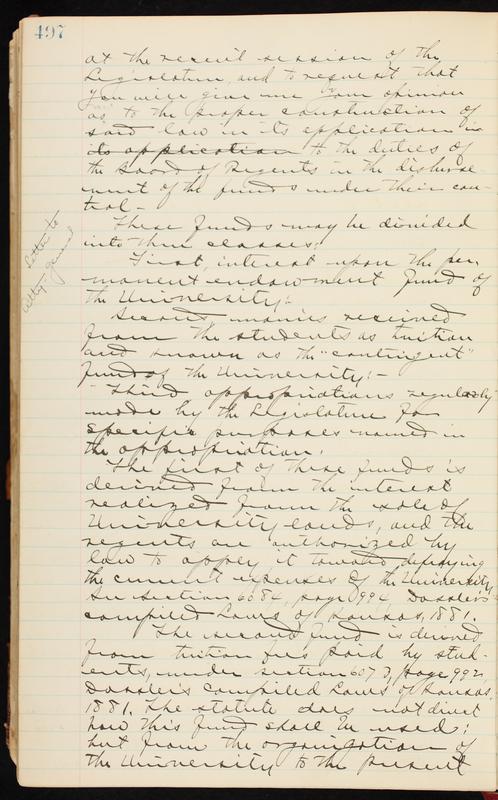 497
at the recent session of the
Legislature, and to request that
you will give me your opinion
as to the proper construction of
said law in its application in
its application to the duties of
the Board of Regents in the disburse-
ment of the funds under their con-
trol-
These funds may be divided
into three classes:
Letter to
Atty. General
First, interest upon the per-
manent endowment fund of
the University:-
Second, monies received
from the students as tuition
and known as the "contingent"
fund of the University:-
Third appropriations regularly
made by the Legislature for
specific purposes named in
the appropriation.
The first of these funds is
derived from the interest
realized from the sale of
University lands, and the
regents are authorized by
law to apply it toward defraying
the current expenses of the University
See section 6084, page 994, Dassler's
compiled Laws of Kansas, 1881.
The second fund is derived
from tuition fees paid by stud-
ents, under section 6073, page 992,
Dassler's compiled Laws of Kansas,
1881. The statute does not direct
how this fund shall be used;
but from the organization of
the University to the present